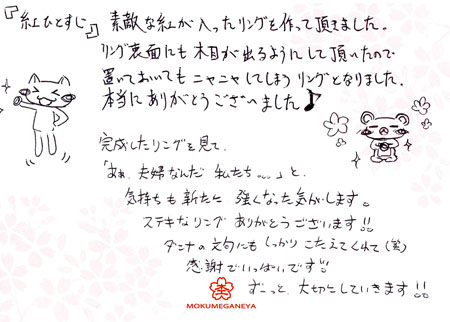 『紅ひとすじ』 素敵な紅が入ったリングを作って頂きました。
リング裏面にも木目が出るようにして頂いたので
置いておいてもニャニャしてしまうリングとなりました。
本当にありがとうございました♪
完成したリングを見て、
「あぁ、夫婦なんだ 私たち…。」と、
気持ちも新たに 強くなった気がします。
ステキなリング ありがとうございます!!
ダンナの文句にも しっかり こたえてくれて(笑)
感謝でいっぱいです!!
ずーっと 大切にしていきます!!
MOKUMEGANEYA